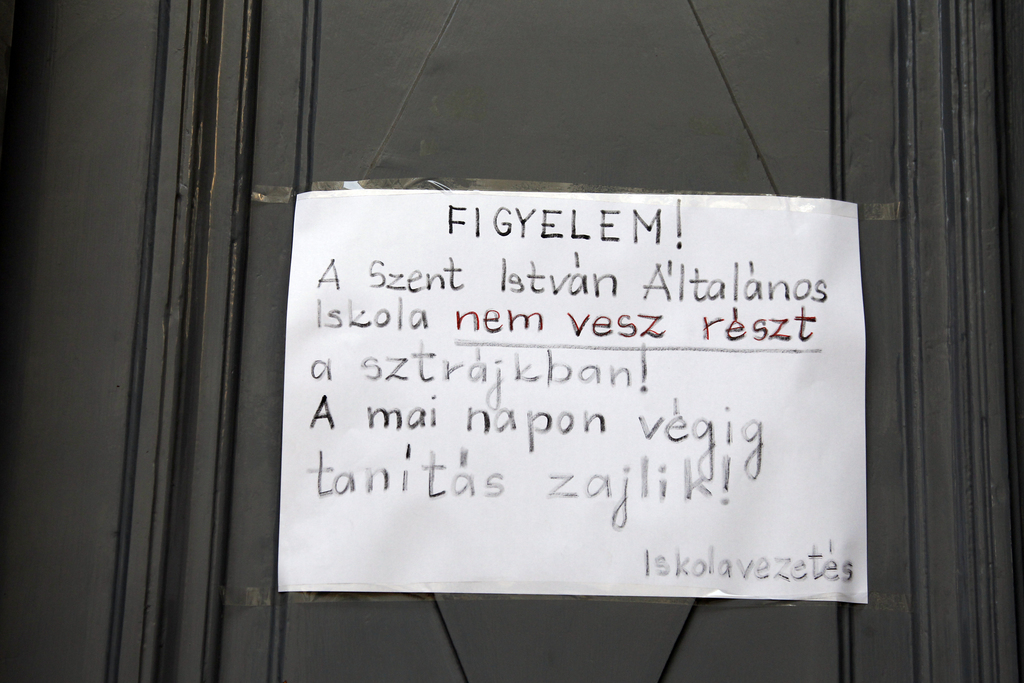 FIGYELEM!
A Szent István Általános
Iskola nem vesz részt
a sztrájkban!
A mai napon végig
tanítás zajlik!
Iskolavezetés